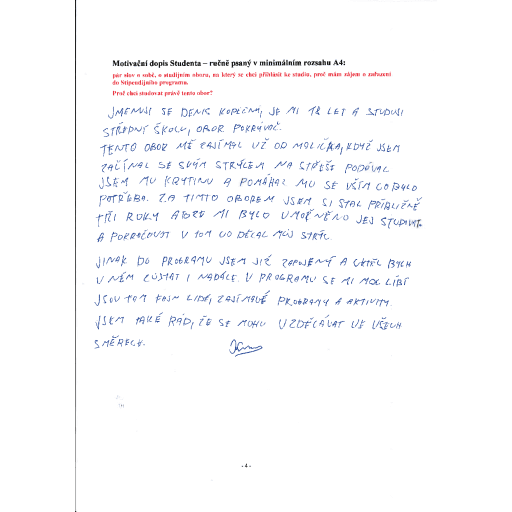 Motivační dopis Studenta – ručně psaný v minimálním rozsahu A4:
pár slov o sobě, o studijním oboru, na který se chci přihlásit ke studiu, proč mám zájem o zařazení
do Stipendijního programu.
Proč chci studovat právě tento obor?
JMENUJI SE DENIS JE MI 18 LET A STUDUJI
STŘEDNÍ ŠKOLU, OBOR POKRÝVAČ.
TENTO OBOR MĚ ZAJÍMAL UŽ OD MALIČKA, KDYŽ JSEM
ZAČÍNAL SE SVÝM STRÝCEM NA STŘEŠE PODÁVAL
JSEM MU KRYTINU A POMÁHAL MU SE VŠÍM CO BYLO
POTŘEBA. ZA TÍMTO OBOREM JSEM SI STÁL PŘIBLIŽNĚ
TŘI ROKY A BYLO UMOŽNĚNO JEJ STUDOVAT
A POKRAČOVAT V TOM CO DĚLAL MŮJ STRÝC.
JINAK DO PROGRAMU JSEM JIŽ ZAPOJENÝ A CHTĚL BYCH
V NĚM ZŮSTAT I NADÁLE. V PROGRAMU SE MI MOC LÍBÍ
JSOU TAM FAJN LIDÉ, ZAJÍMAVÉ PROGRAMY A AKTIVITY.
JSEM TAKÉ RÁD, ŽE SE MOHU VZDĚLÁVAT VE VŠECH
SMĚRECH.
- 4 -